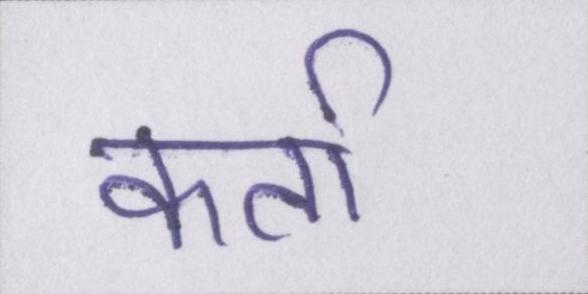 कर्ता